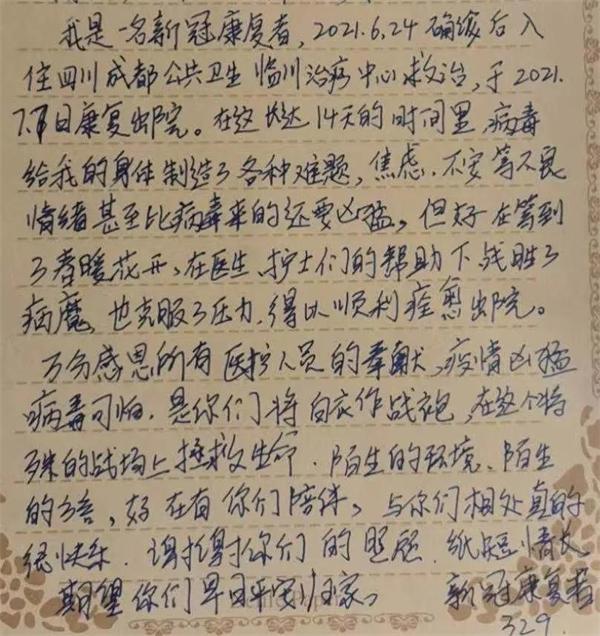 我是一名新冠康复者,2021.6.24确诊后入
住四川成都公共卫生临川治疗中心救治,于2021.
7.7日康复出院。在这长达14天的时间里,病毒
给我的身体制造了各种难题,焦虑、不安等不良
情绪甚至比病毒来的还要凶猛。但好在等到
了春暖花开,在医生、护士们的帮助下战胜了
病魔,也克服了压力,得以顺利痊愈出院。
万分感恩所有医护人员的奉献,疫情凶猛
病毒可怕,是你们将白衣作战袍,在这个特
殊的战场上拯救生命.陌生的环境、陌生
的语言,好在有你们陪伴,与你们相处真的
很快乐.谢谢你们的照顾.纸短情长
期望你们早日平安归家。 新冠康复者
329.